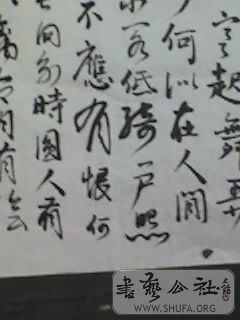 起舞弄
何似在人間
低綺戶照
不應有恨何
向别時圓人有
陰
書藝公社
WWW.SHUFA.ORG